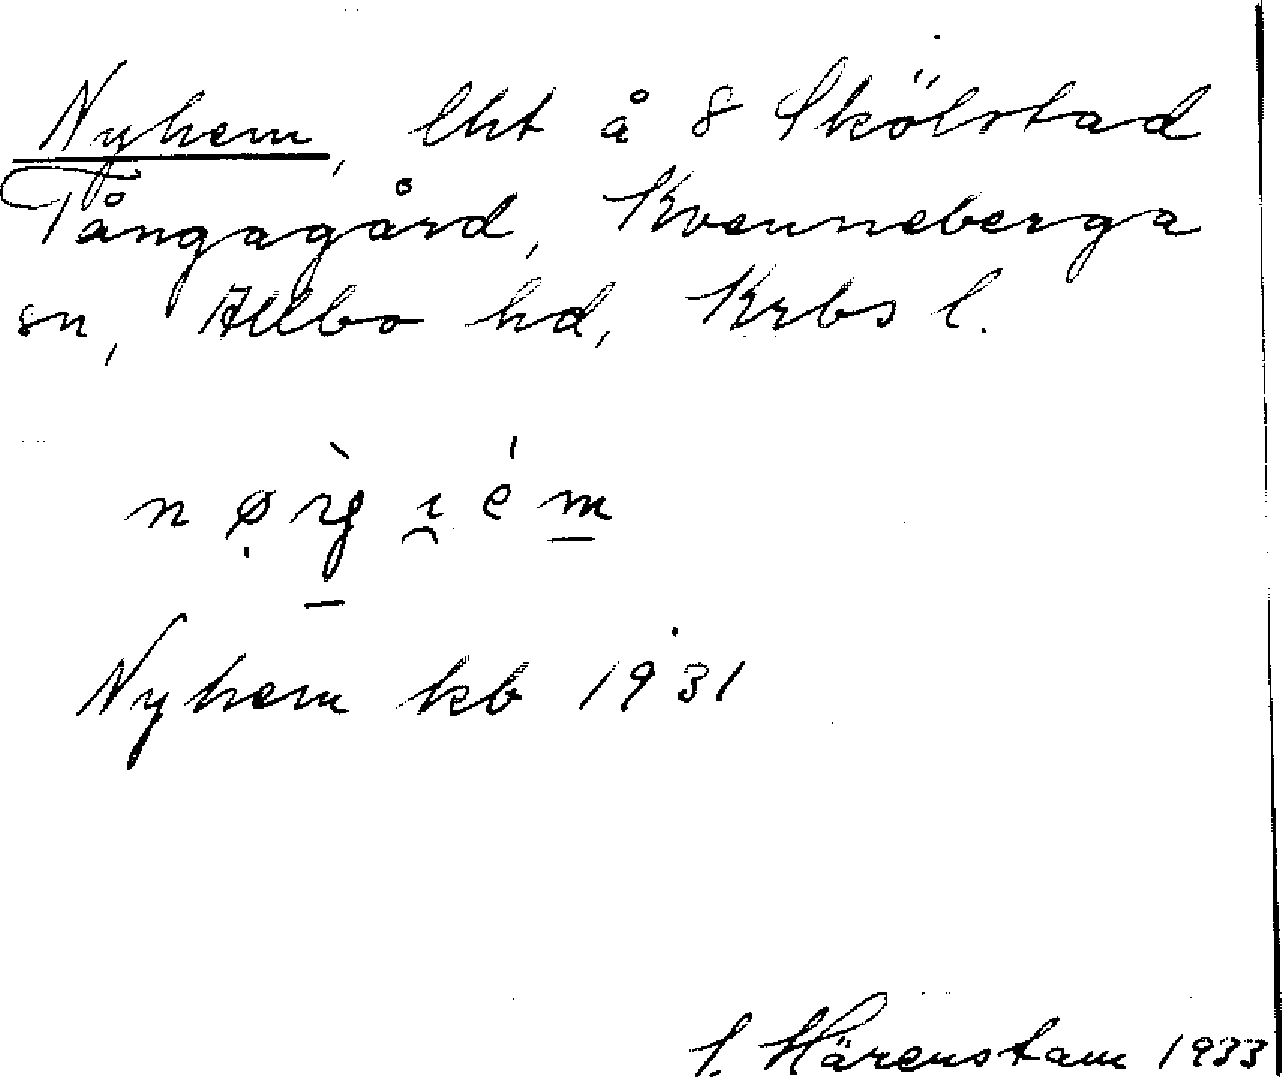 Nyhem, lht å 8 Skölstad
Tångagård, Kvenneberga
sn, Allbo hd, Krbs l.
Nyhem kb 1931
S. Härenstam 1933